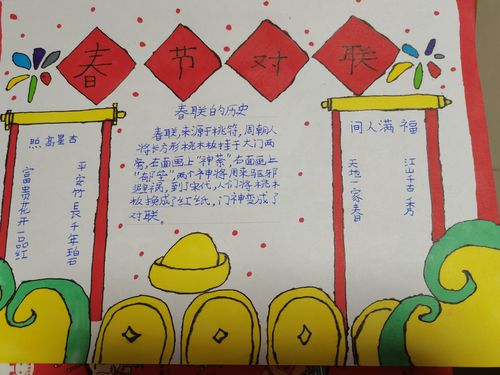 春节对联
春联的历史
春联,来源于桃符,周朝人
将长方形桃木板挂于大门两
旁,右面画上"神荼"右面画上
"郁荤",两个神将用来驱邪
避祸,到了宋代,人们将桃木
板换成了红纸,门神变成了
对联。
照高星吉
平安竹長千年碧
富贵花开一品红
间人满福
江山千古秀
天地一家春